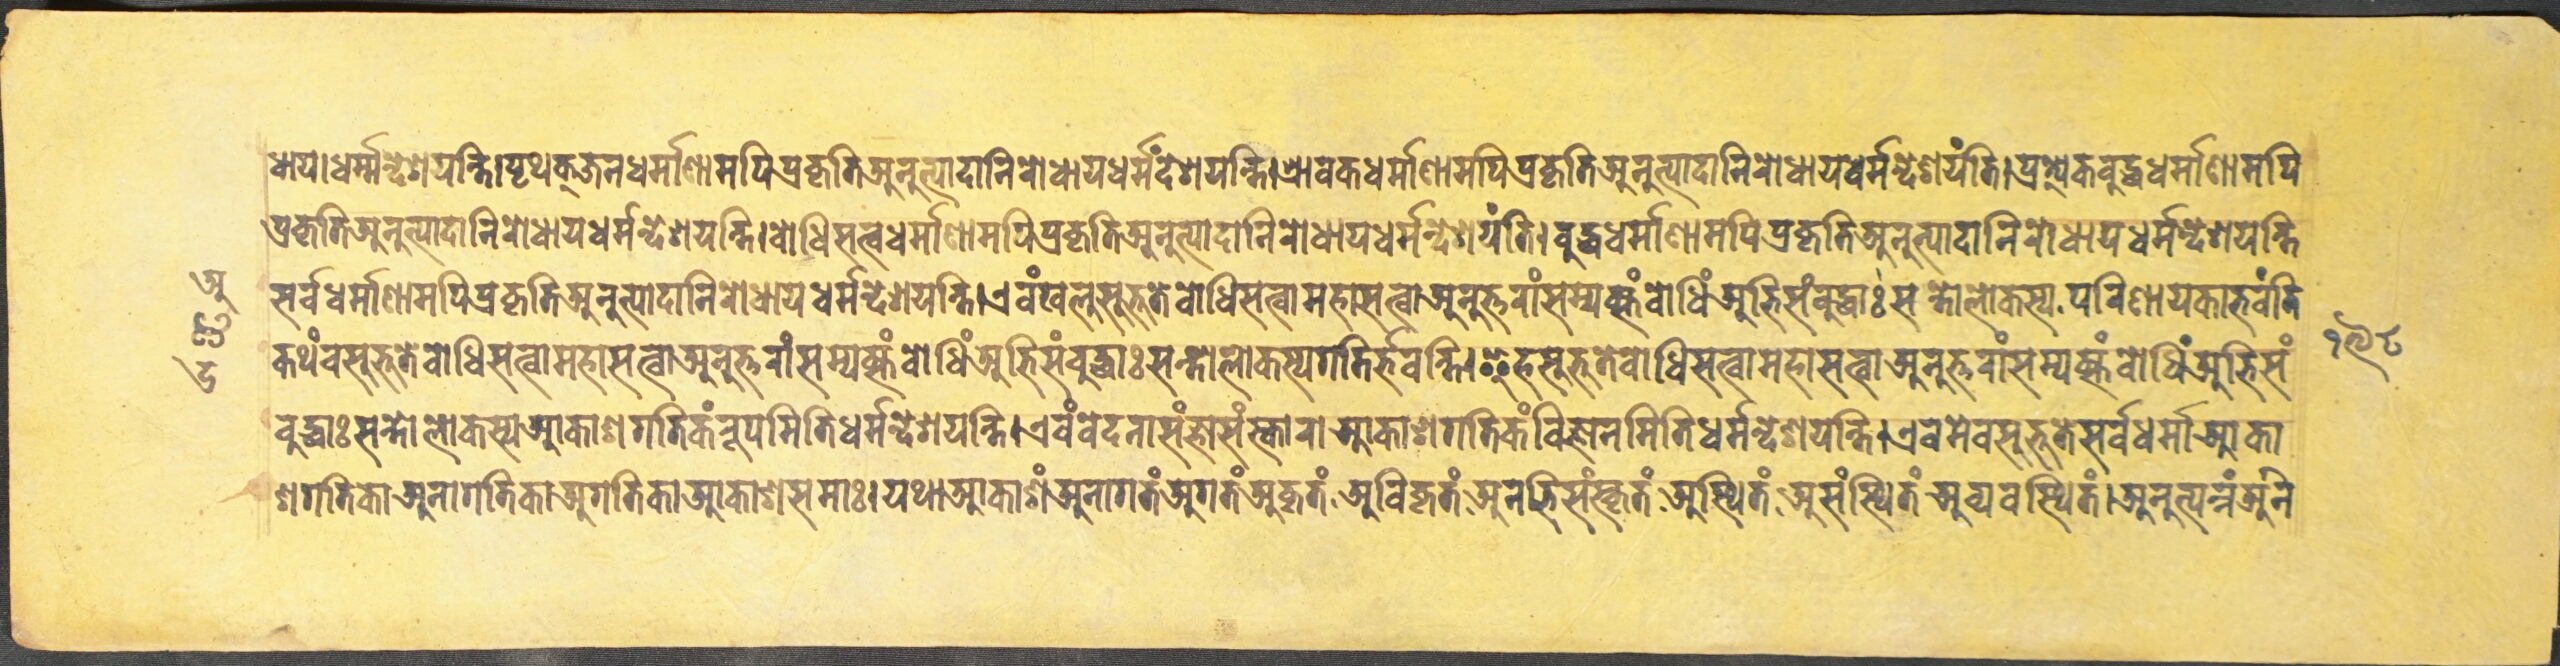 धाय।धर्म्मन्देशयन्ति।पृथक्जनधर्माणामपिप्रकृतिअनुत्पादानिरोधायधर्मंदेशयन्ति।श्रावकधर्माणामपिप्रकृतिअनुत्पादानिरोधायधर्मन्देशयंति।प्रत्येकबुद्धधर्माणामपि
प्रकृतिअनुत्पादानिरोधायधर्मन्देशयन्ति।बोधिसत्वधर्माणामपिप्रकृतिअनुत्पादानिरोधायधर्मन्देशयंति।बुद्धधर्माणामपिप्रकृतिअनुत्पादानिरोधायधर्मन्देशयन्ति
सर्वधर्माणामपिप्रकृतिअनुत्पादानिरोधायधर्मन्देशयन्ति।एवंखलुसुभुतेबोधिसत्वामहासत्वाअनुत्तरांसम्यक्संबोधिंअभिसंबुद्धाःसन्तोलोकस्य.परिणायकाभवंति
कथंवसुभुतेबोधिसत्वामहासत्वाअनुत्तरांसम्यक्संबोधिंअभिसंबुद्धाःसन्तोलोकस्यगतिर्भवन्ति।इहसुभुतेबोधिसत्वामहासत्वाअनुत्तरांसम्यक्संबोधिंअभिसं
बुद्धाःसन्तोलोकस्यआकाशगतिकंरूपमितिधर्मन्देशयन्ति।एवंवेदनासंज्ञासंस्काराआकाशगतिकंविज्ञानमितिधर्मन्देशयन्ति।एवमेवसुभुतेसर्वधर्माआका
शगतिकोअनागतिकाअगतिकाआकाशसमाः।यथाआकाशंअनागतंअगतंअकृतं.अविकृतं.अनभिसंस्कृतं.अस्थितं.असंस्थितं.अव्यवस्थितं।अनुत्पन्नंअनि